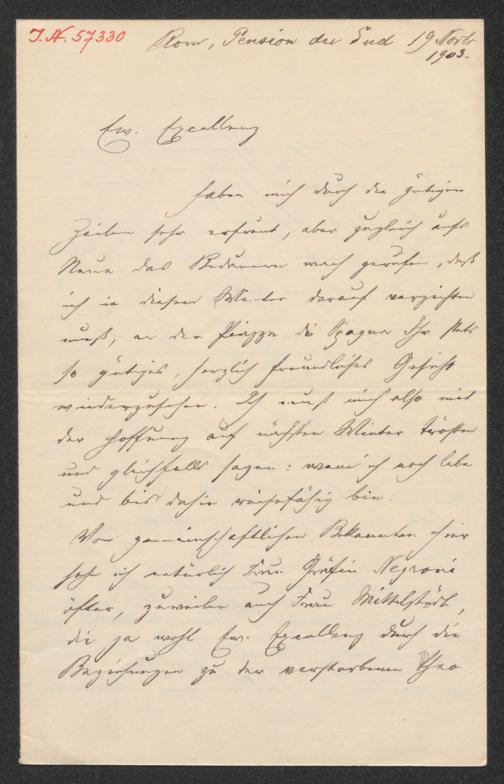 J.N. 57330
Rom, Pension du Sud 19 Novbr
1903.
Ew. Excellenz
haben mich durch die gütigen
Zeilen sehr erfreut, aber zugleich aufs
Neue das Bedauern wach gerufen, daß
ich in diesem Winter darauf verzichten
muß, an der Piazza di Spagna Ihr stets
so gütiges, herzlich freundliches Gesicht
wiederzusehen. Ich muß mich also mit
der Hoffnung auf nächsten Winter trösten
und gleichfalls sagen: wenn ich noch lebe
und bis dahin reisefähig bin.
Von gemeinschaftlichen Bekannten hier
sehe ich natürlich Frau Gräfin Negroni
öfter, zuweilen auch Frau Mittelstädt,
die ja wohl Ew. Excellenz durch die
Beziehungen zu der verstorbenen Thea